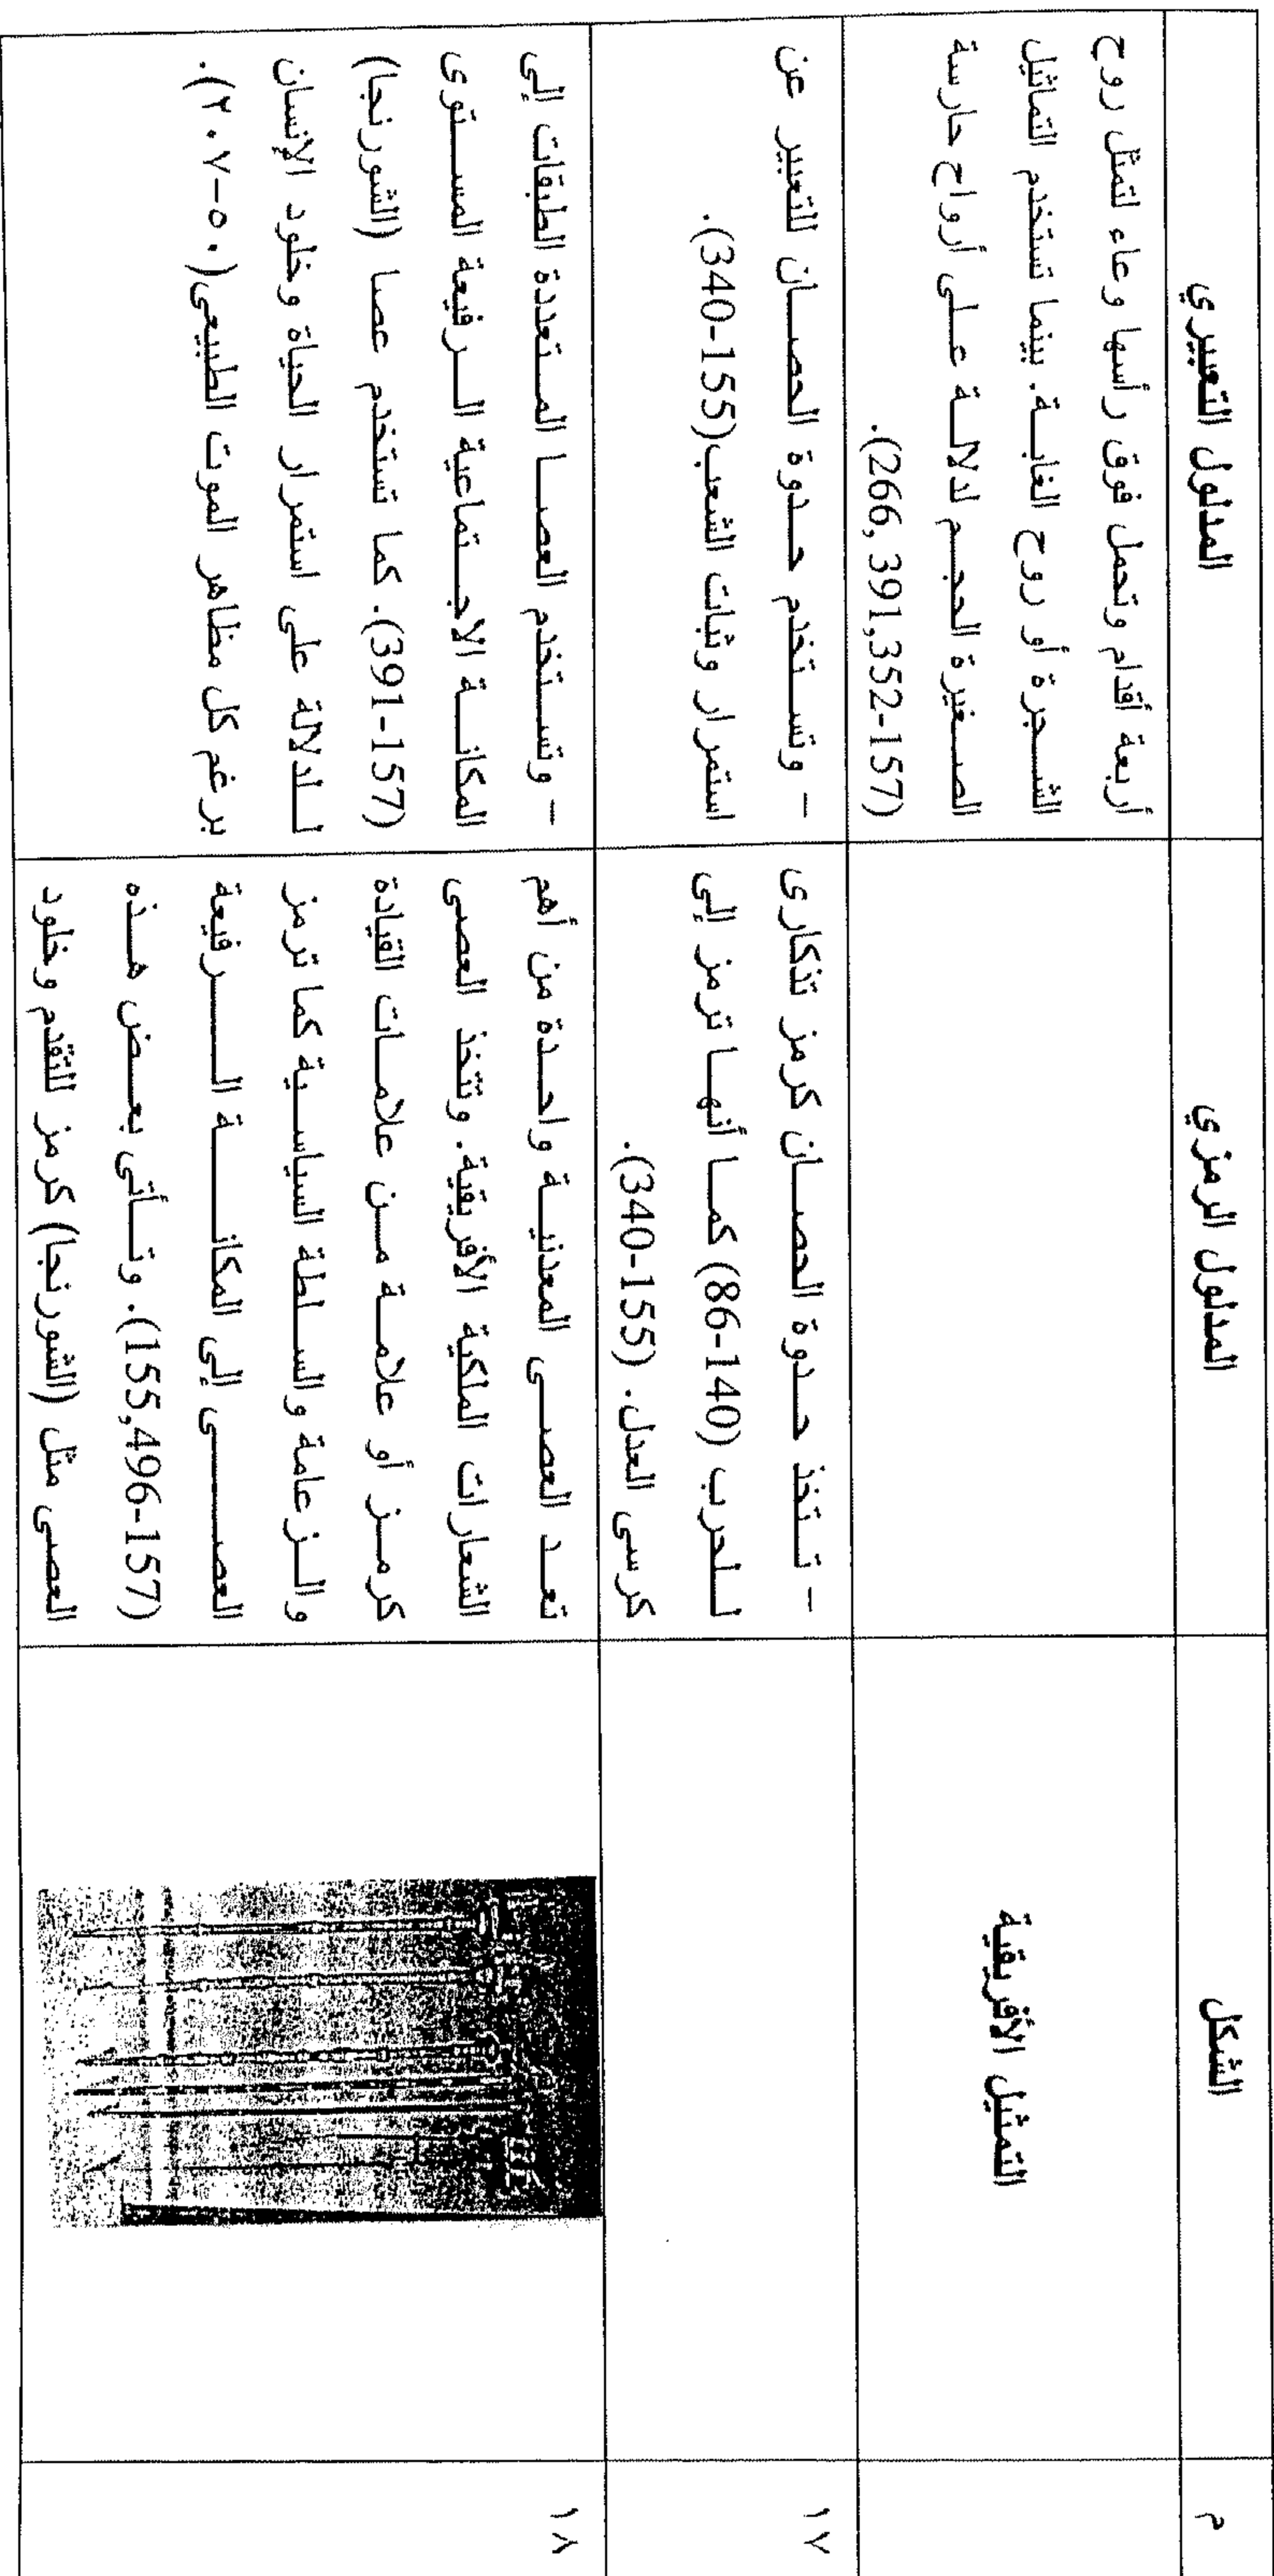 م
الشكل
المدلول الرمزي
المدلول التعبيري
التمثيل الأفريقية
أربعة أقدام وتحمل فوق رأسها وعاء لتمثل روح
الشجرة أو روح الغابة. بينما تستخدم التماثيل
الصغيرة الحجم لدلالة على أرواح حارسة
(157-266, 391,352).
١٧
- تتخذ حدوة الحصان كرمز تذكارى
للحرب (140-86) كما أنها ترمز إلى
كرسى العدل. (155-340).
- وتستخدم حدوة الحصان للتعبير عن
استمرار وثبات الشعب(155-340).
١٨
تعد العصى المعدنية واحدة من أهم
الشعارات الملكية الأفريقية. وتتخذ العصى
كرمز أو علامة من علامات القيادة
والزعامة والسلطة السياسية كما ترمز
العصى إلى المكانة الرفيعة
(157-155,496). وتأتى بعض هذه
العصى مثل (الشورنجا) كرمز للتقدم وخلود
- وتستخدم العصا المتعددة الطبقات إلى
المكانة الاجتماعية الرفيعة المستوى
(157-391). كما تستخدم عصا (الشورنجا)
لدلالة على استمرار الحياة وخلود الإنسان
برغم كل مظاهر الموت الطبيعى(٥٠-٢٠٧).